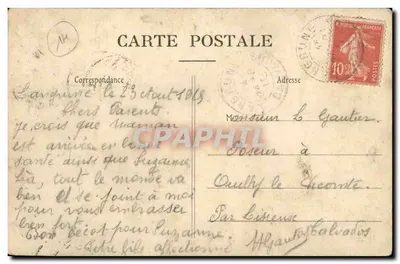 CARTE POSTALE
Correspondance
Adresse
10
POSTES
CPARAMA
Langrune le 23 août 19
Chers Parents
je crois que maman
est arrivée en
santé ainsi que Suzanne
tout le monde va
bien et se joint à moi
pour vous embrasser
bien fort
bécot pour Suzanne
Votre fils affectionné
Monsieur L. Gautier
Poseur à
Ouilly le Vicomte
Par Lisieux
Calvados